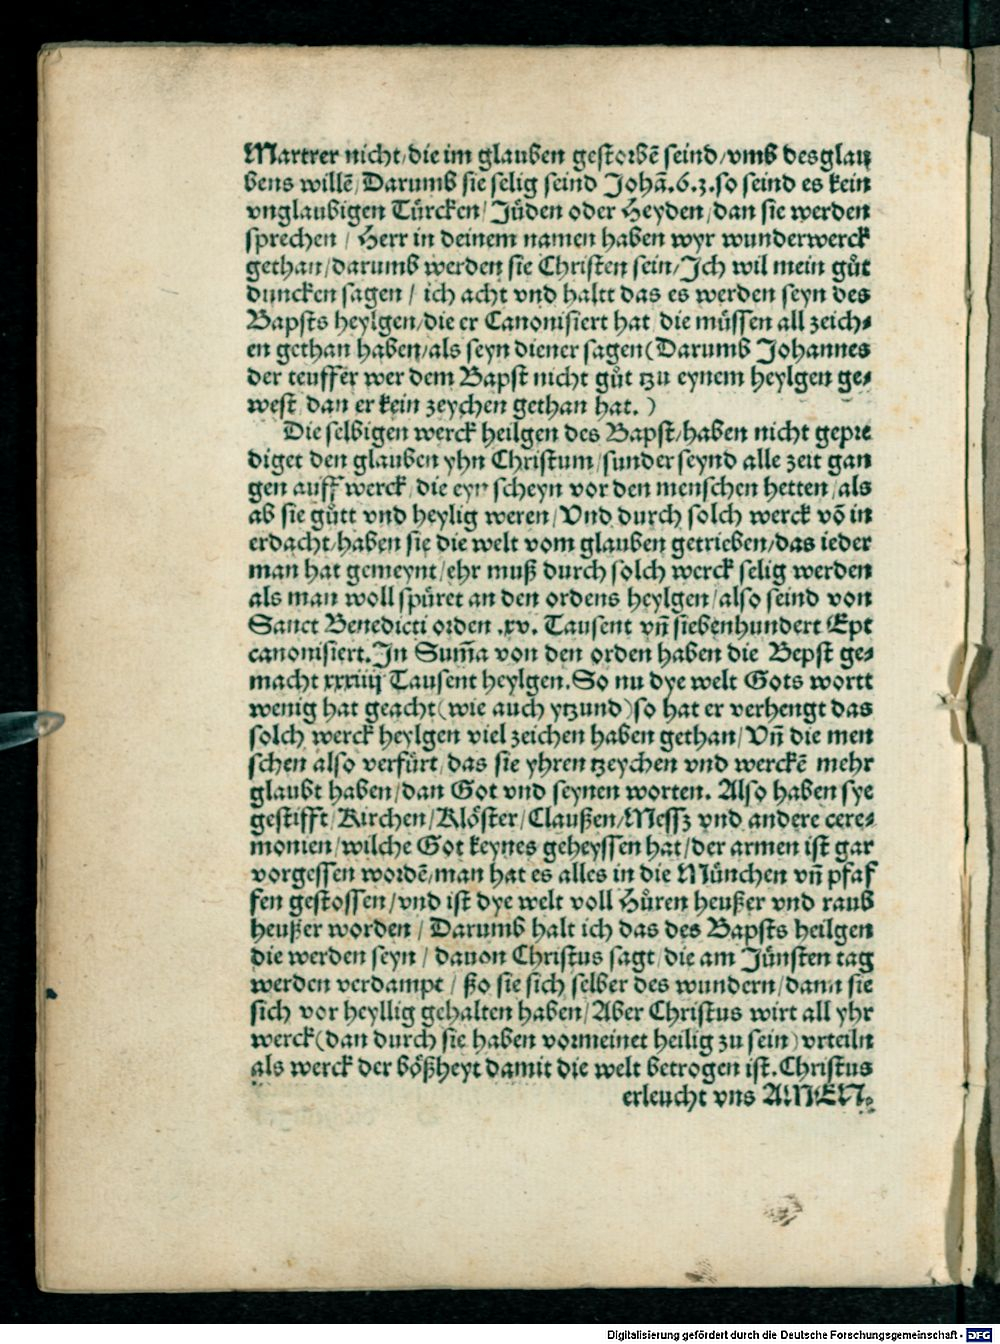 Martrer nicht/die im glauben gestorbē seind/vmb desglau
bens willē/Darumb sie selig seind Johā.6.3.so seind es kein
vnglaubigen Tuͤrcken/Juͤden oder Heyden/dan sie werden
sprechen / Herr in deinem namen haben wyr wunderwerck
gethan/darumb werden sie Christen sein/Jch wil mein guͦt
duncken sagen / ich acht vnd haltt das es werden seyn des
Bapsts heylgen/die er Canonisiert hat/die muͤssen all zeich⸗
en gethan haben/als seyn diener sagen(Darumb Johannes
der teuffer wer dem Bapst nicht guͦt tzu eynem heylgen ge⸗
west/dan er kein zeychen gethan hat.)
Die selbigen werck heilgen des Bapst/haben nicht gepre
diget den glauben yhn Christum/sunder seynd alle zeit gan
gen auff werck/die eyn scheyn vor den menschen hetten/als
ab sie guͦtt vnd heylig weren/Vnd durch solch werck vō in
erdacht/haben sie die welt vom glauben getrieben/das ieder
man hat gemeynt/ehr muß durch solch werck selig werden
als man woll spuͤret an den ordens heylgen/also seind von
Sanct Benedicti orden .xv. Tausent vn̄ siebenhundert Ept
canonisiert.Jn Sum̄a von den orden haben die Bepst ge⸗
macht xxxiiij Tausent heylgen.So nu dye welt Gots wortt
wenig hat geacht(wie auch ytzund)so hat er verhengt das
solch werck heylgen viel zeichen haben gethan/Vn̄ die men
schen also verfuͤrt/das sie yhren tzeychen vnd werckē mehr
glaubt haben/dan Got vnd seynen worten. Also haben sye
gestifft/Kirchen/Kloͤster/Claußen/Messz vnd andere cere⸗
monien/wilche Got keynes geheyssen hat/der armen ist gar
vorgessen wordē/man hat es alles in die Muͤnchen vn̄ pfaf
fen gestossen/vnd ist dye welt voll Huͤren heußer vnd raub
heußer worden / Darumb halt ich das des Bapsts heilgen
die werden seyn / dauon Christus sagt/die am Juͤnsten tag
werden verdampt / ßo sie sich selber des wundern/dann sie
sich vor heyllig gehalten haben/Aber Christus wirt all yhr
werck(dan durch sie haben vormeinet heilig zu sein)vrteiln
als werck der boͤßheyt damit die welt betrogen ist.Christus
erleucht vns AMEN.
Digitalisierung gefördert durch die Deutsche Forschungsgemeinschaft - DFG